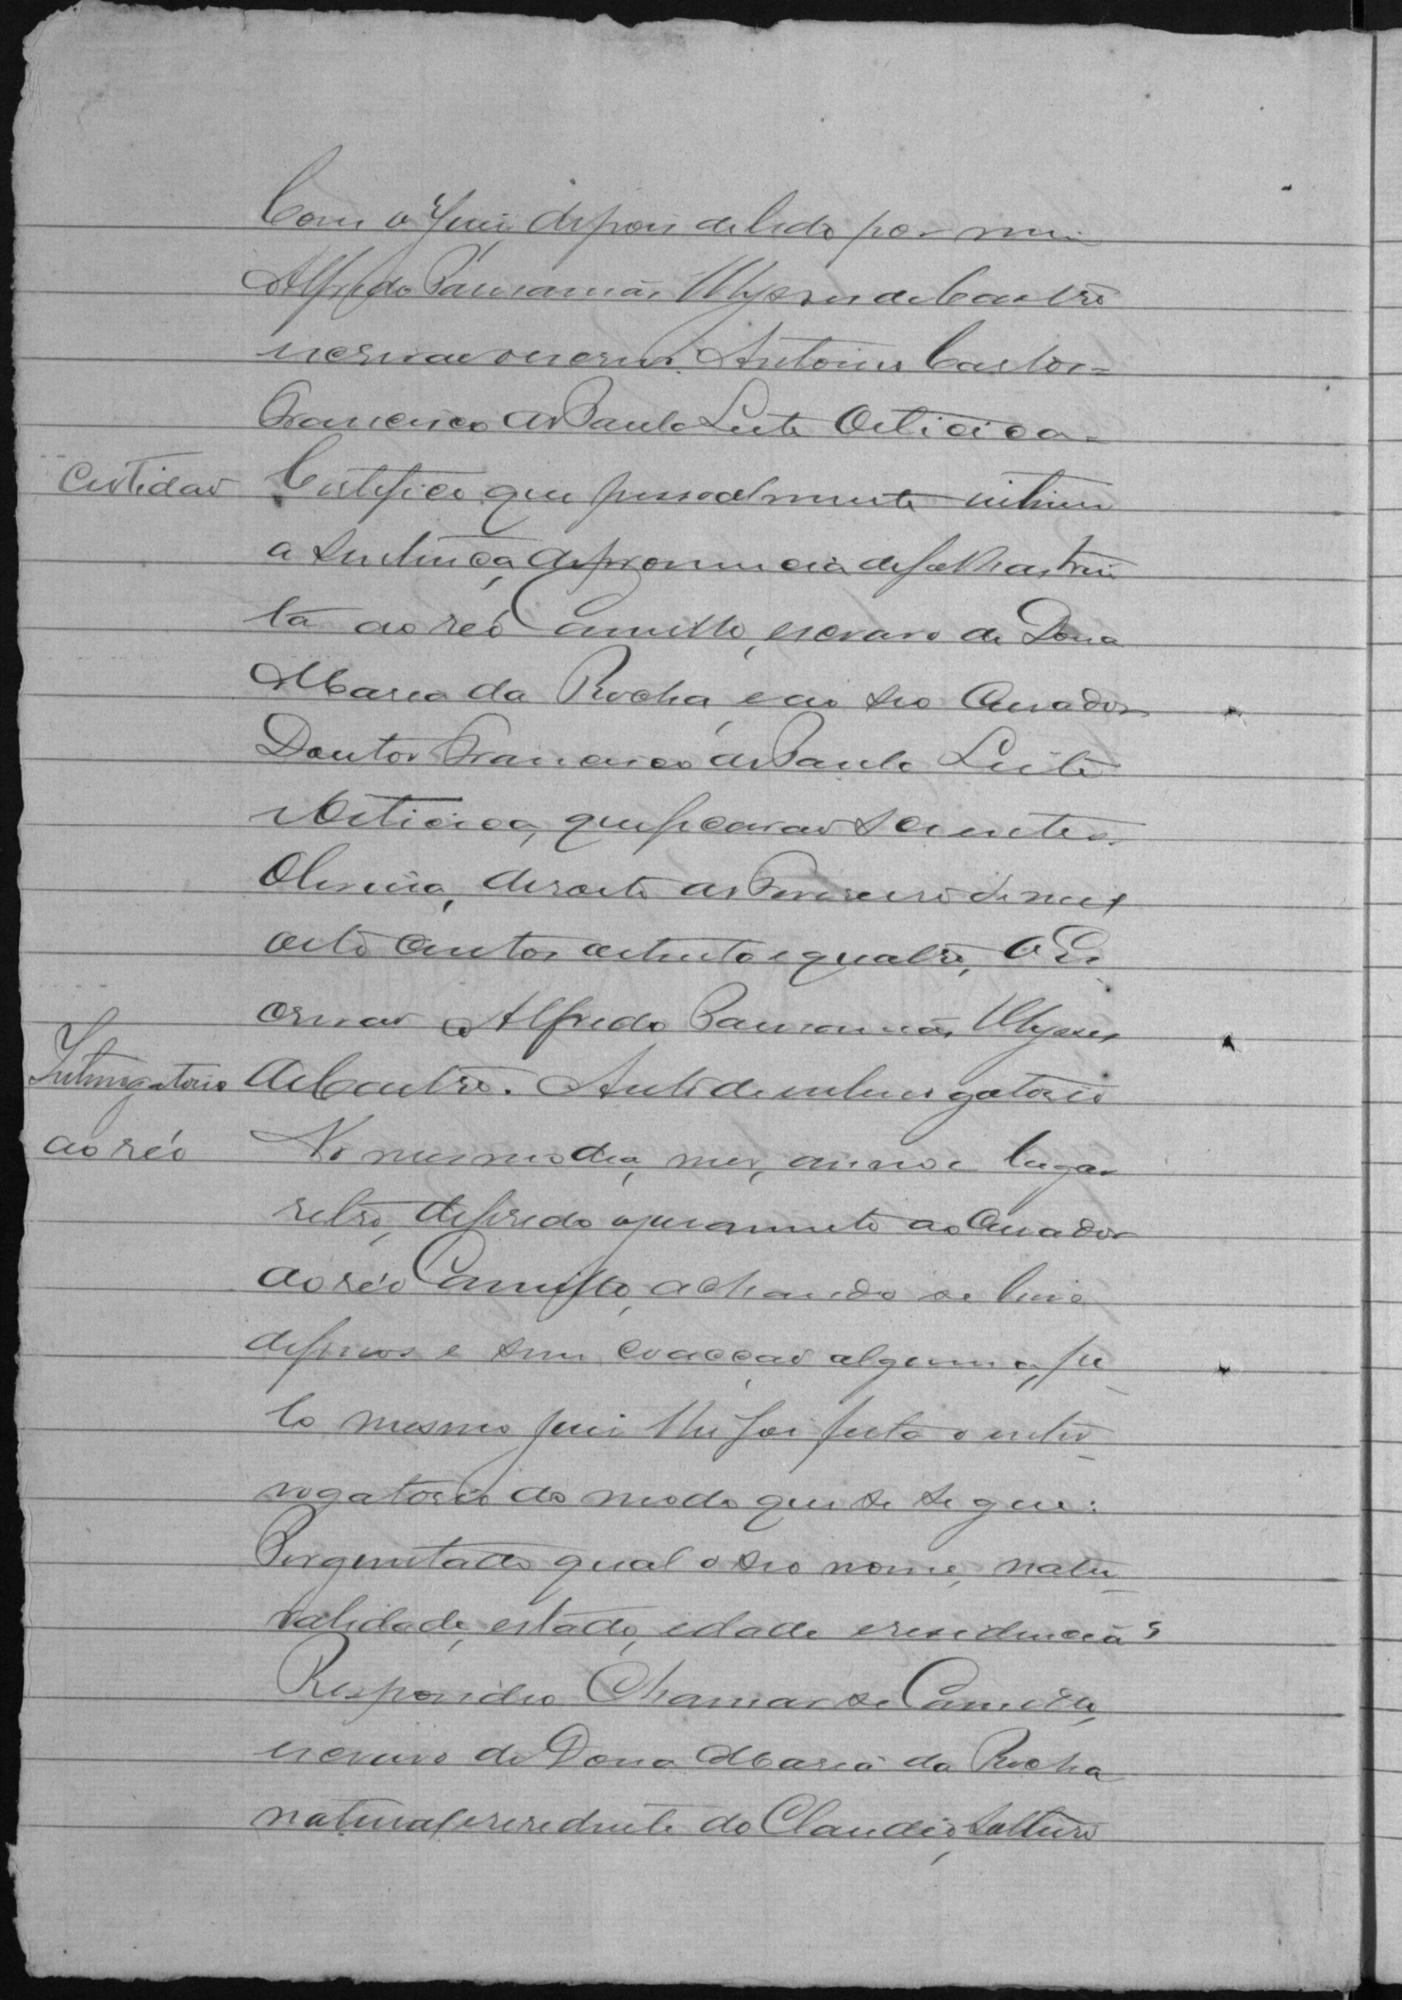 Com o Juiz depois de lido por mim
Alfredo Pausanias Ulysses de Castro
escrivão escrevi. Antonio Castor =
Francisco de Paula Leite Oiticica =
Certidão Certifico que pessoalmente intimei
a sentença de pronuncia de folhas trin
ta ao réo Camillo, escravo de Dona
Maria da Rocha, e ao seo Curador
Doutor Francisco de Paula Leite
Oiticica, que ficarão scientes.
Olivença, de Fevereiro de mil
oito centos oitenta e quatro, O Es
crivão Alfredo Pausanias Ulysses
Interrogatorio de Castro. Auto de interrogatorio
ao réo No mesmo dia, mez, anno e lugar
retro, deferido o juramento ao Curador
do réo Camillo, achando se livre
de ferros e sem coacção alguma, pe-
lo mesmo Juiz lhe foi feito o inter-
rogatorio do modo que se segue:
Perguntado qual o seo nome, natu-
ralidade, estado, idade e residencia?
Respondeo Chamar se Camillo,
escravo de Dona Maria da Rocha
natural e residente do Claudio, solteiro